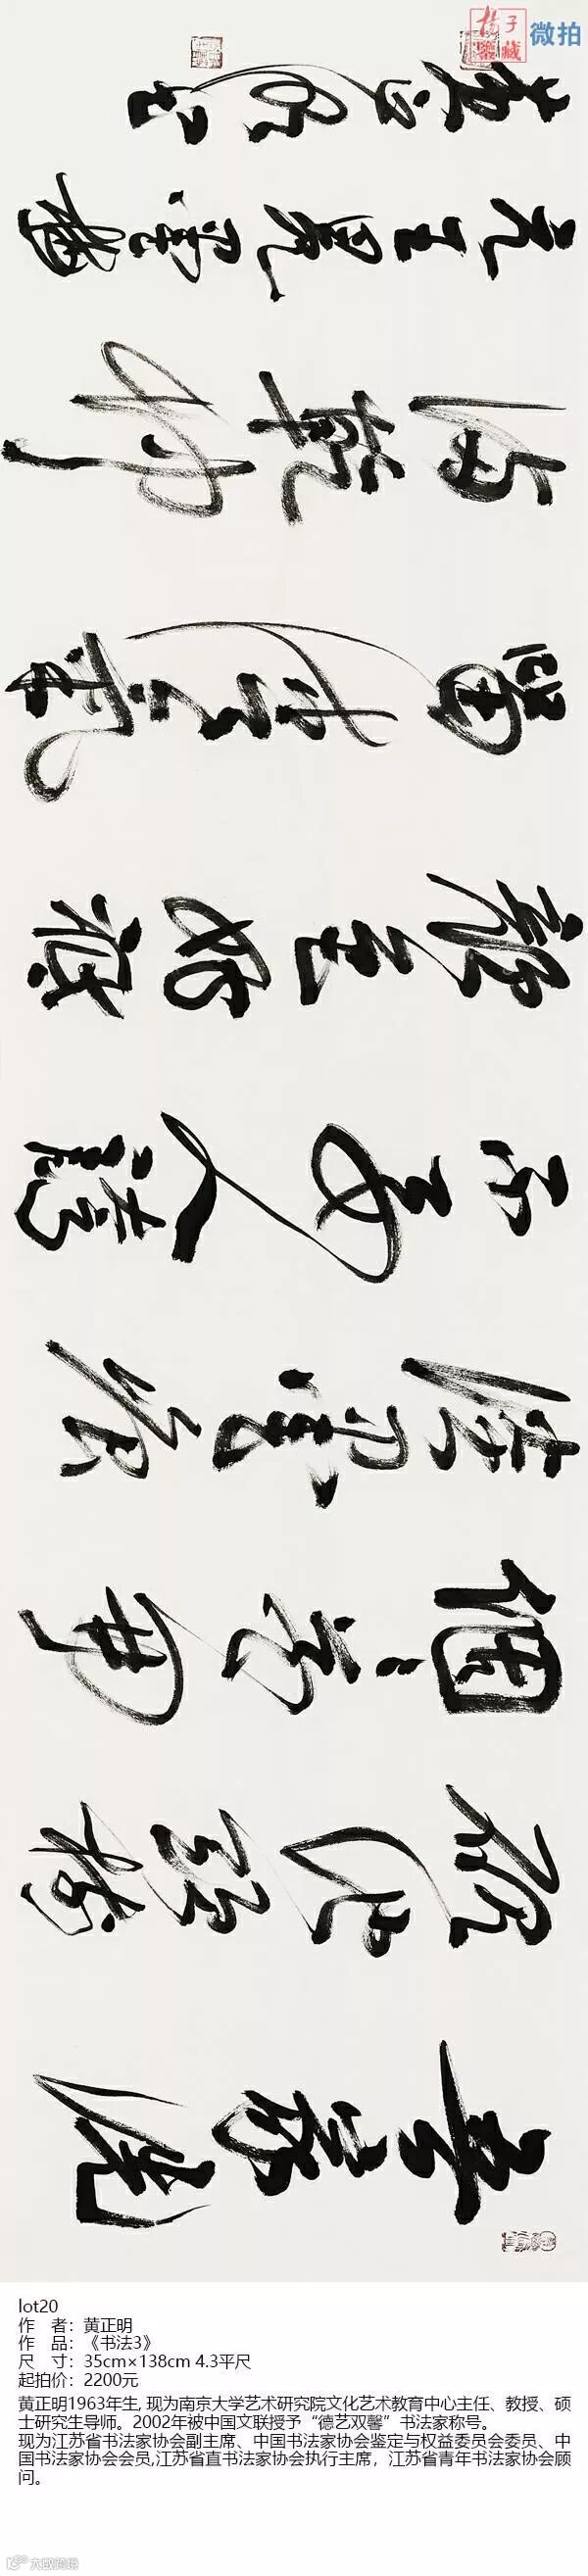 杨子
鉴藏
微拍
吾家洗
砚池頭樹
個々花開
淡墨痕
不要人誇
顏色好
留清氣
滿乾坤
元王冕墨梅
黄正明书
lot20
作 者：黄正明
作 品：《书法3》
尺 寸：35cm×138cm 4.3平尺
起拍价：2200元
黄正明1963年生, 现为南京大学艺术研究院文化艺术教育中心主任、教授、硕
士研究生导师。2002年被中国文联授予“德艺双馨”书法家称号。
现为江苏省书法家协会副主席、中国书法家协会鉴定与权益委员会委员、中
国书法家协会会员,江苏省直书法家协会执行主席，江苏省青年书法家协会顾
问。